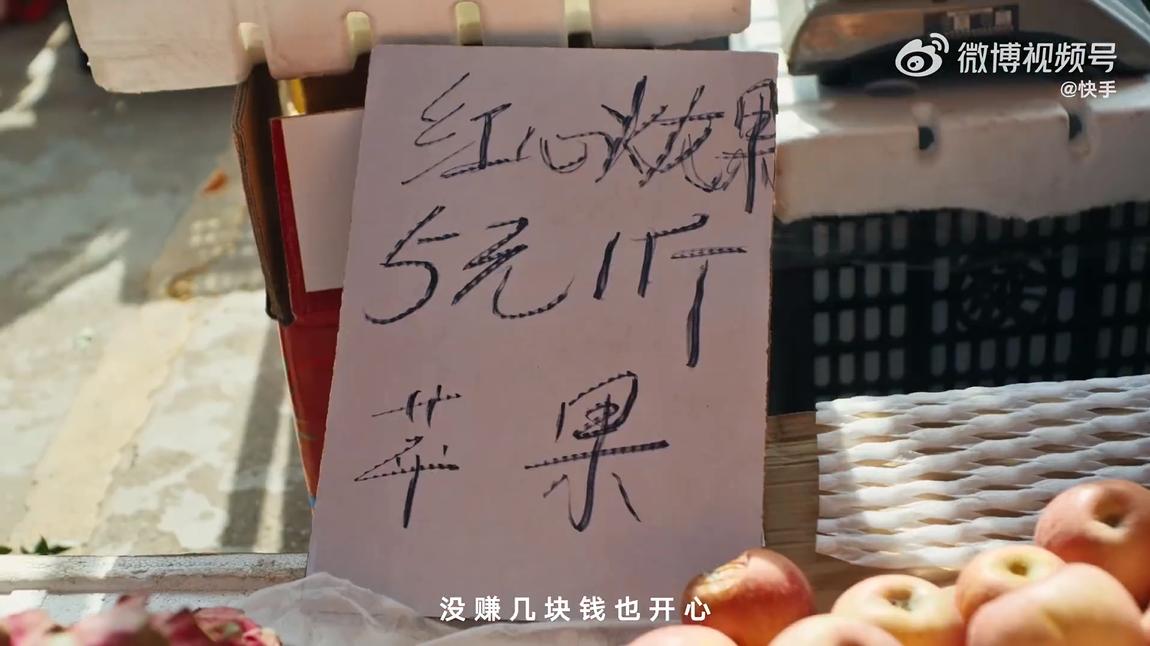 微博视频号
@快手
红心火龙果
5元1斤
苹果
没赚几块钱也开心